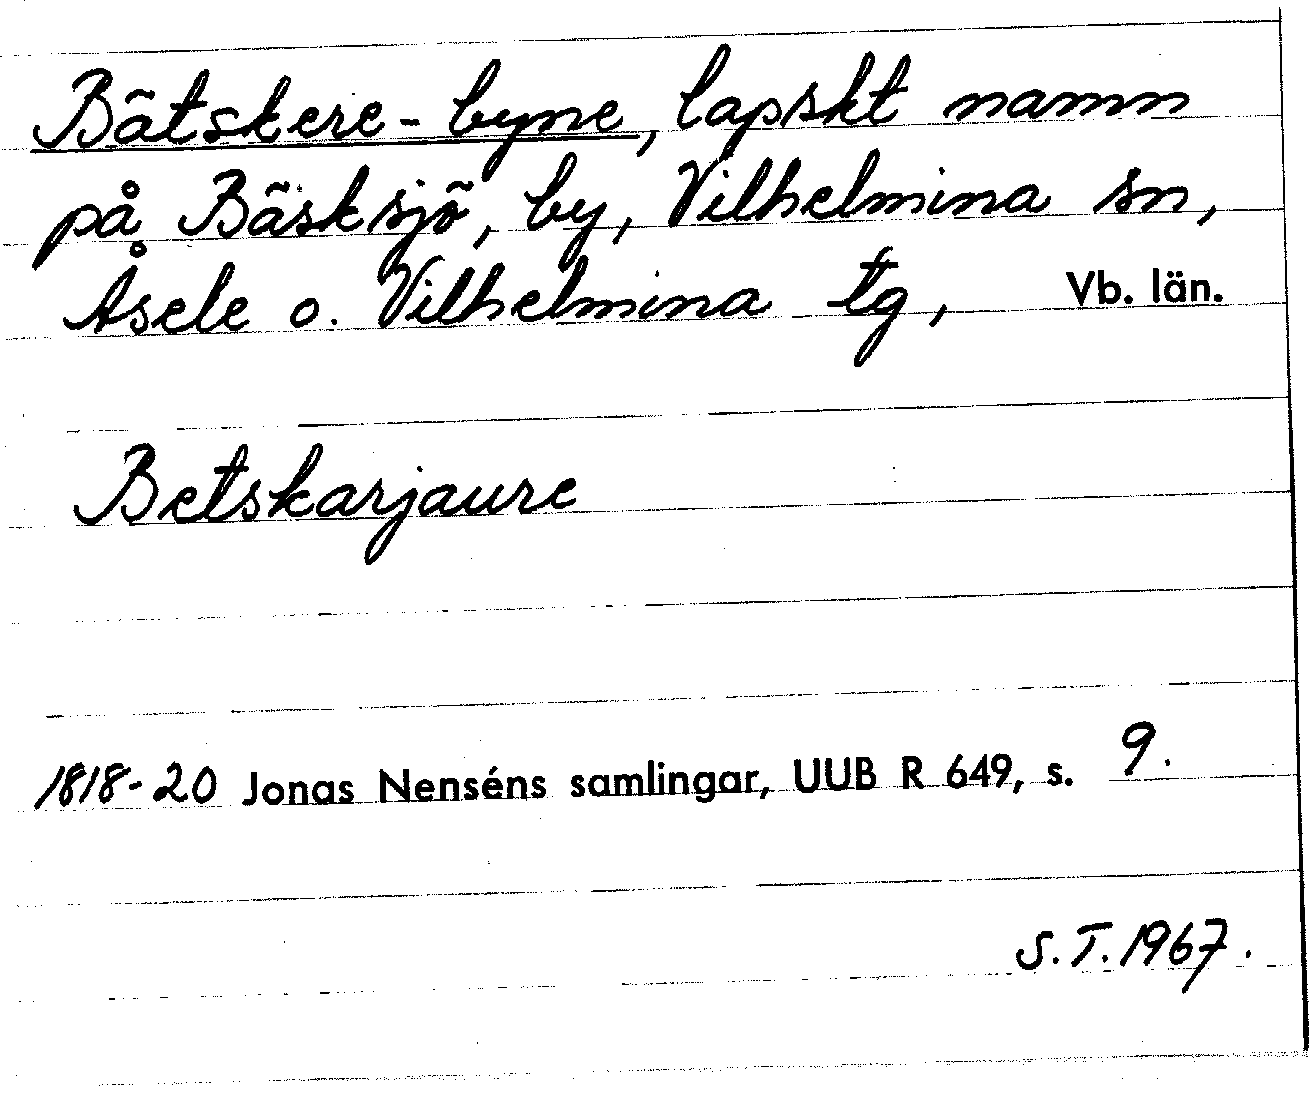 Bätskere-byne, lapskt namn
på Bäsksjö, by, Vilhelmina sn,
Åsele o. Vilhelmina tg, Vb. län.
Betskarjaure
1818-20 Jonas Nenséns samlingar, UUB R 649, s. 9.
S.T. 1967.